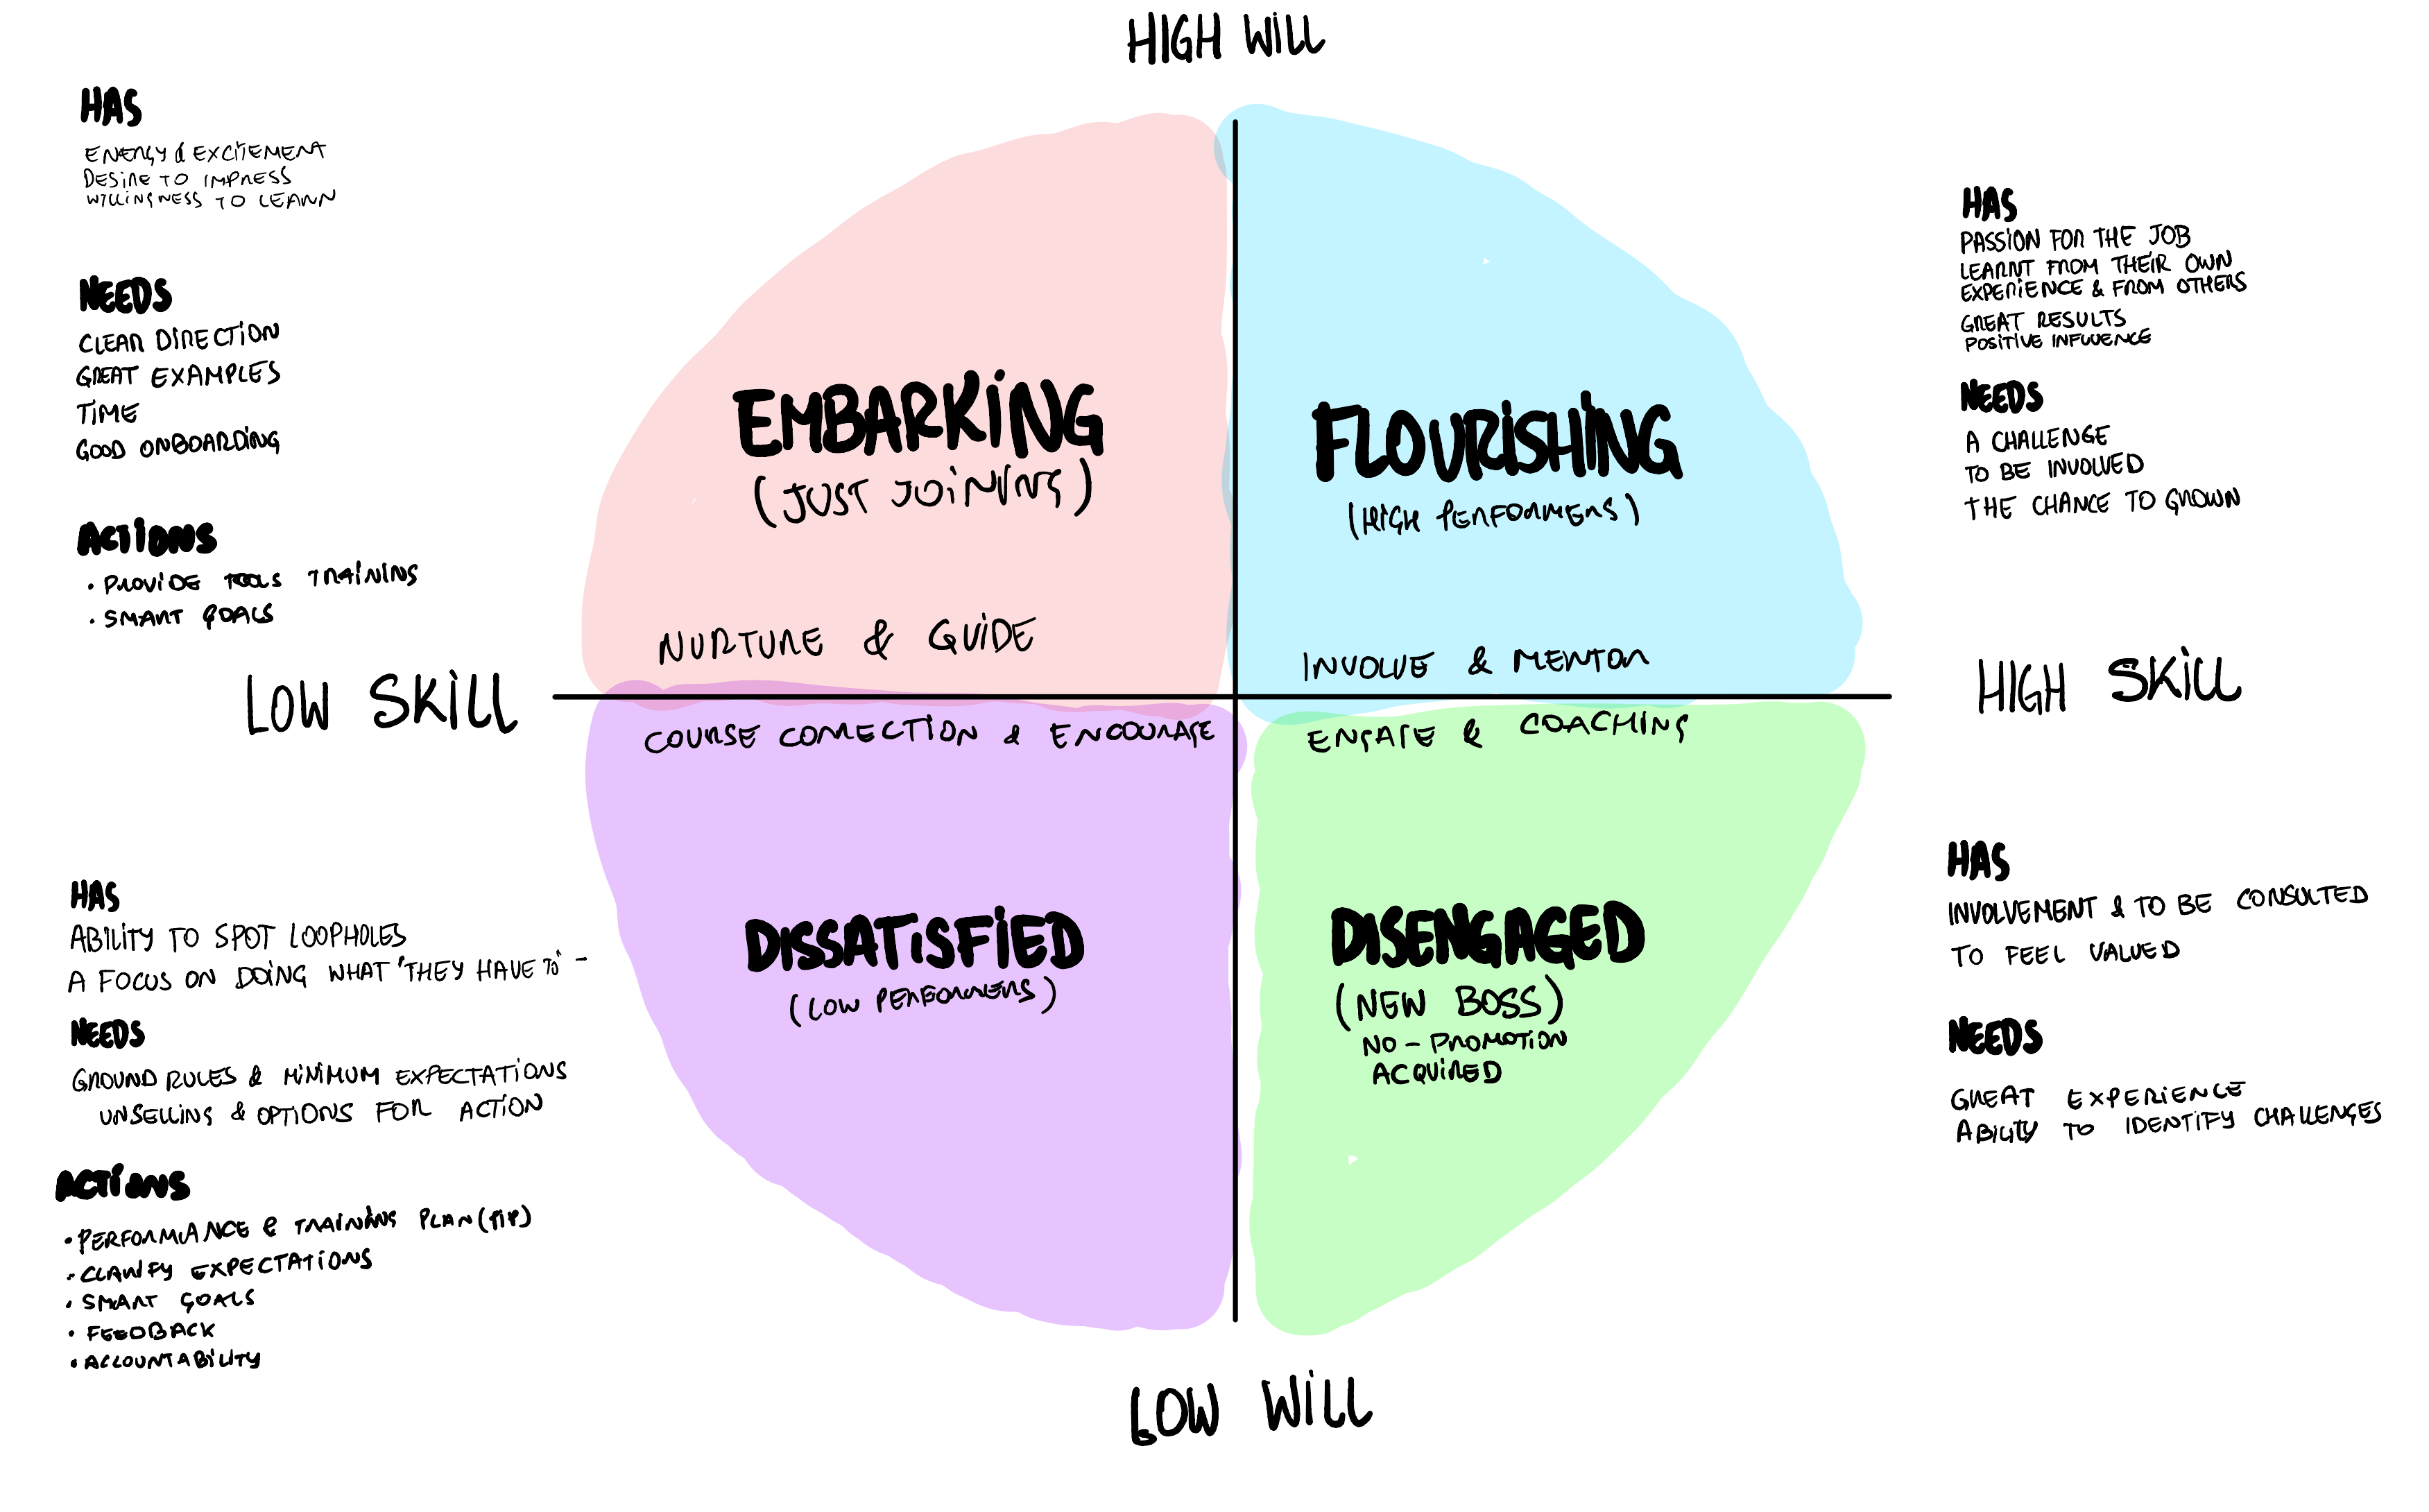 HIGH WILL
HAS
ENERGY & EXCITEMENT
DESIRE TO IMPRESS
WILLINGNESS TO LEARN
NEEDS
CLEAR DIRECTION
GREAT EXAMPLES
TIME
GOOD ONBOARDING
ACTIONS
• PROVIDE TOOLS TRAINING
• SMART GOALS
EMBARKING
(JUST JOINING)
NURTURE & GUIDE
FLOURISHING
(HIGH PERFORMERS)
INVOLVE & MENTOR
HAS
PASSION FOR THE JOB
LEARNT FROM THEIR OWN
EXPERIENCE & FROM OTHERS
GREAT RESULTS
POSITIVE INFLUENCE
NEEDS
A CHALLENGE
TO BE INVOLVED
THE CHANCE TO GROWN
LOW SKILL
HIGH SKILL
COURSE CORRECTION & ENCOURAGE
ENGAGE & COACHING
HAS
ABILITY TO SPOT LOOPHOLES
A FOCUS ON DOING WHAT 'THEY HAVE TO' -
NEEDS
GROUND RULES & MINIMUM EXPECTATIONS
UNSELLING & OPTIONS FOR ACTION
ACTIONS
• PERFORMANCE & TRAINING PLAN (PIP)
• CLARIFY EXPECTATIONS
• SMART GOALS
• FEEDBACK
• ACCOUNTABILITY
DISSATISFIED
(LOW PERFORMERS)
DISENGAGED
(NEW BOSS)
NO - PROMOTION
ACQUIRED
HAS
INVOLVEMENT & TO BE CONSULTED
TO FEEL VALUED
NEEDS
GREAT EXPERIENCE
ABILITY TO IDENTIFY CHALLENGES
LOW WILL